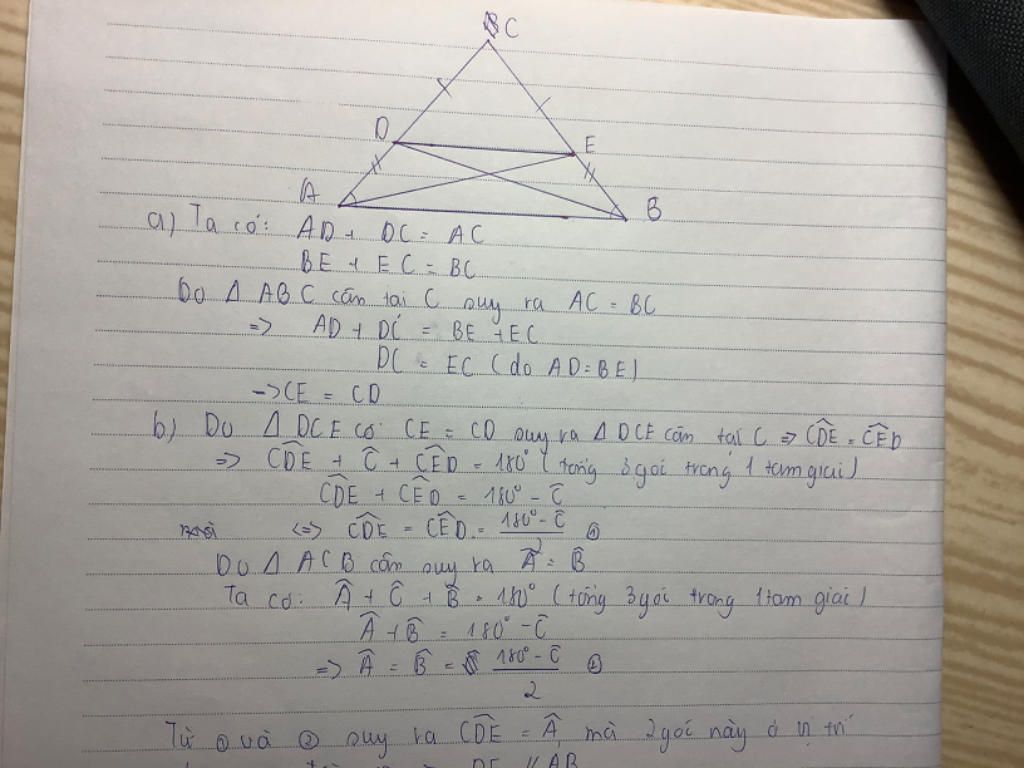 C
D
E
A
B
a) Ta có: AD + DC = AC
BE + EC = BC
Do Δ ABC cân tại C suy ra AC = BC
=> AD + DC = BE + EC
DC = EC (do AD = BE)
-> CE = CD
b) Do Δ DCE có CE = CD suy ra Δ DCE cân tại C => \widehat{CDE} = \widehat{CED}
=> \widehat{CDE} + \widehat{C} + \widehat{CED} = 180° (tổng 3 góc trong 1 tam giác)
\widehat{CDE} + \widehat{CED} = 180° - \widehat{C}
<=> \widehat{CDE} = \widehat{CED} = \frac{180° - \widehat{C}}{2} ①
Do Δ ACB cân suy ra \widehat{A} = \widehat{B}
Ta có: \widehat{A} + \widehat{C} + \widehat{B} = 180° (tổng 3 góc trong 1 tam giác)
\widehat{A} + \widehat{B} = 180° - \widehat{C}
=> \widehat{A} = \widehat{B} = \frac{180° - \widehat{C}}{2} ②
Từ ① và ② suy ra \widehat{CDE} = \widehat{A} mà 2 góc này ở vị trí
DE // AB